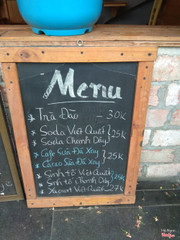 Menu
Trà Đào - 30K
Soda Việt Quất
Soda Chanh Dây
25K
Cafe Sữa Đá Xay
Cacao Sữa Đá Xay
25K
Sinh tố Việt Quất
Sinh tố Chanh Dây
25K
Yaourt Việt Quất - 27K